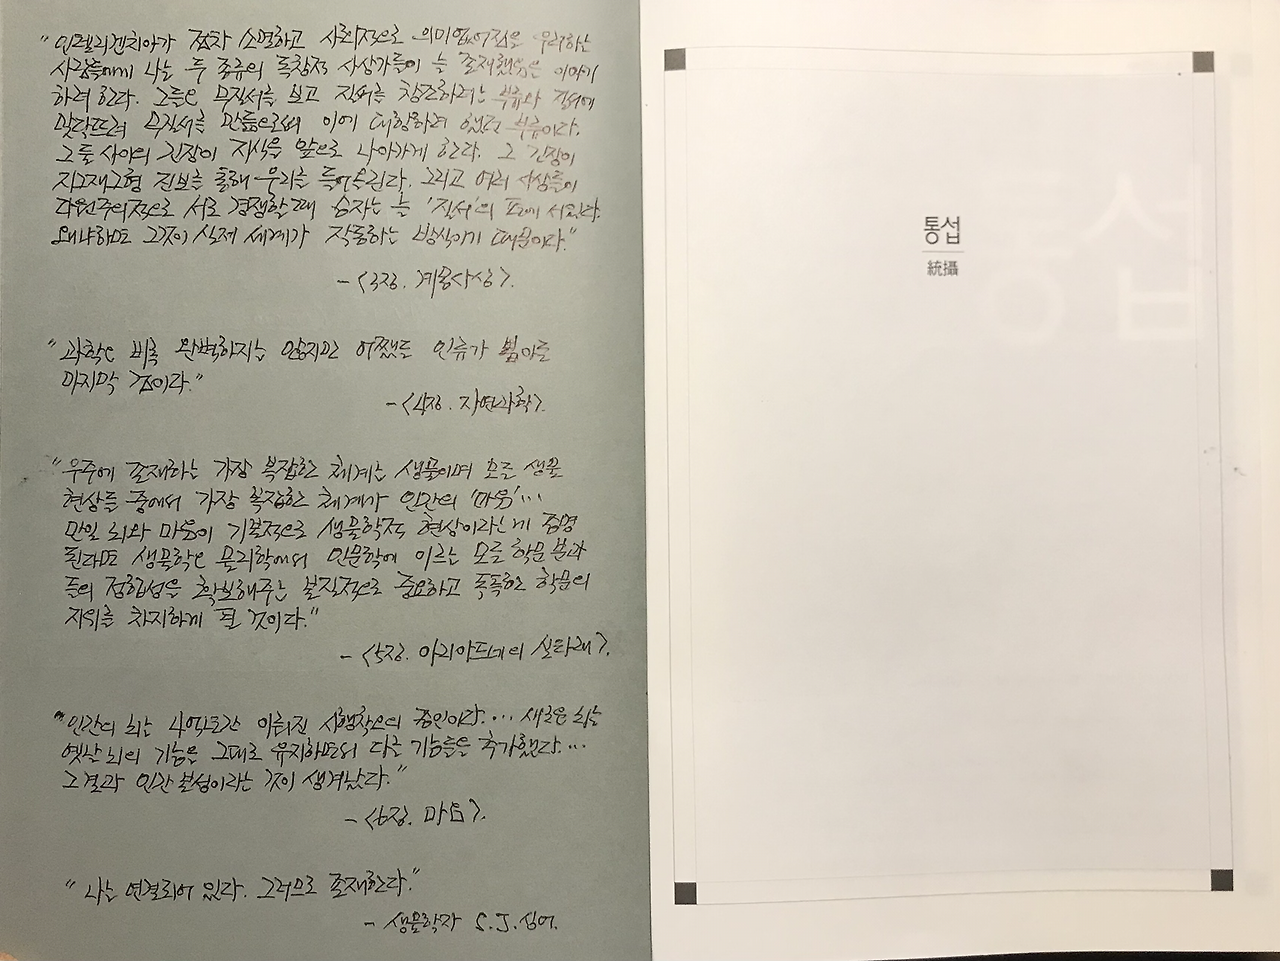 "인텔리겐치아가 점차 소멸하고 사회적으로 의미없어짐을 우려하는
사람들에게 나는 두 종류의 독창적 사상가들이 늘 존재했음을 이야기
하려 한다. 그들은 무질서를 보고 질서를 창조하려는 부류와 질서에
맞닥뜨려 무질서를 만듦으로써 이에 대항하려 했던 부류이다.
그들 사이의 긴장이 지식을 앞으로 나아가게 한다. 그 긴장이
지그재그형 진보를 통해 우리를 들어올린다. 그리고 여러 사상들이
다원주의적으로 서로 경쟁할 때 승자는 늘 '질서'의 편에 서있다.
왜냐하면 그것이 실제 세계가 작동하는 방식이기 때문이다."
- <3장. 계몽사상>.
"과학은 비록 완벽하지는 않지만 어쨌든 인류가 뽑아든
마지막 검이다."
- <4장. 자연과학>.
"우주에 존재하는 가장 복잡한 체계는 생물이며 모든 생물
현상들 중에서 가장 복잡한 체계가 인간의 '마음'…
만일 뇌와 마음이 기본적으로 생물학적 현상이라는게 증명
된다면 생물학은 물리학에서 인문학에 이르는 모든 학문 분과
들의 정합성을 확보해주는 본질적으로 중요하고 독특한 학문의
지위를 차지하게 될 것이다."
- <5장. 아리아드네의 실타래>.
"인간의 뇌는 4억년간 이뤄진 시행착오의 증인이다.… 새로운 뇌는
옛날 뇌의 기능을 그대로 유지하면서 다른 기능들을 추가했다.…
그 결과 인간 본성이라는 것이 생겨났다."
- <6장. 마음>.
"나는 연결되어 있다. 그러므로 존재한다."
- 생물학자 S.J.싱어.
통섭
統攝
통섭